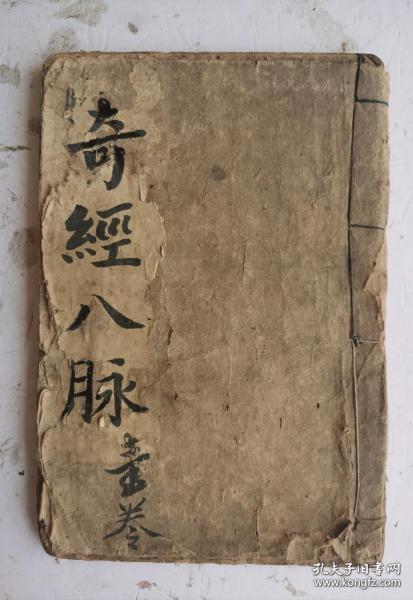 奇經八脉
全卷
孔夫子旧书网
www.kongfz.com